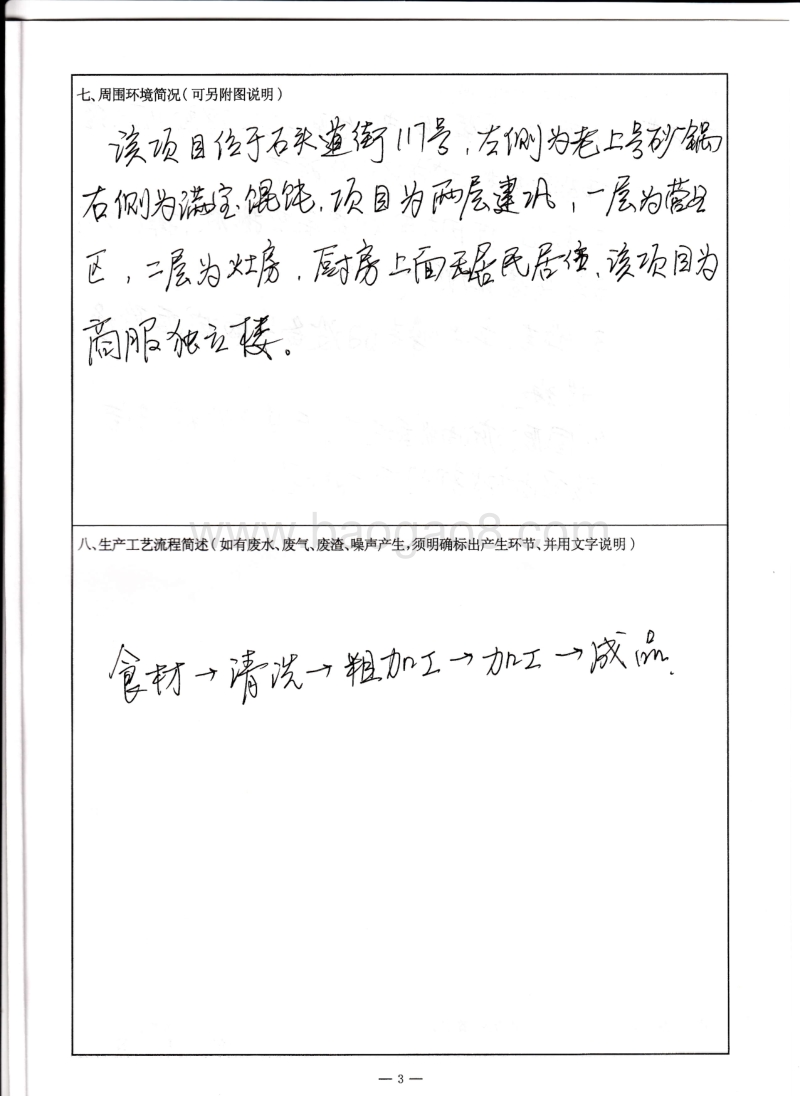 七、周围环境简况(可另附图说明)
该项目位于石头道街117号,左侧为老上号砂锅
右侧为满宝馄饨,项目为两层建筑,一层为营业
区,二层为灶房,厨房上面无居民居住,该项目为
商服独立楼。
www.baogao8.com
八、生产工艺流程简述(如有废水、废气、废渣、噪声产生,须明确标出产生环节、并用文字说明)
食材→清洗→粗加工→加工→成品.
— 3 —